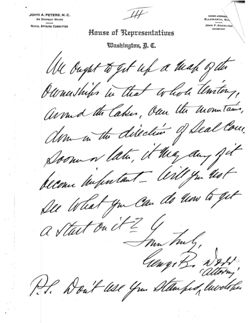 JOHN A. PETERS, M. C.
III
House of Representatives
Washington, D. C.
We ought to get up a map of the
ownerships in that whole territory,
around the lakes, over the mountains,
down in the direction of Seal Cove
Sooner or later, it may any of it
become important - Will you not
see what you can do now to get
a start on it?
Yours truly,
George B. Dorr
P.S. Don't use your stamped, envelopes